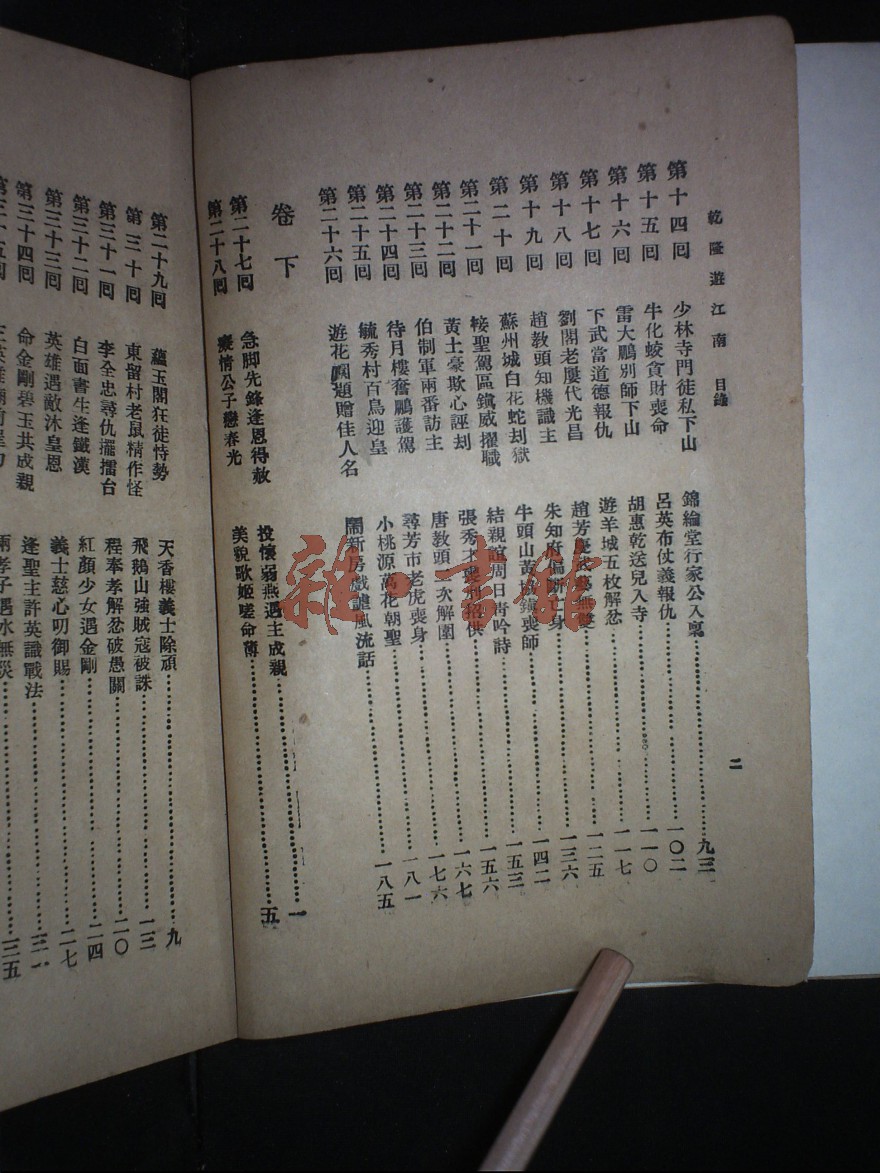 乾隆遊江南 目錄
二
第十四囘 少林寺門徒私下山 錦綸堂行家公入稟 九三
第十五囘 牛化蛟貪財喪命 呂英布仗義報仇 一〇二
第十六囘 雷大鵬別師下山 胡惠乾送兒入寺 一一〇
第十七囘 下武當道德報仇 遊羊城五枚解忿 一一七
第十八囘 劉閣老屢代光昌 趙芳慶武藝無雙 一二五
第十九囘 趙教頭知機識主 朱知府偏斷亡身 一三六
第二十囘 蘇州城白花蛇刦獄 牛頭山黃協鎮喪師 一四二
第二十一囘 接聖駕區鎮威擢職 結親誼周日青吟詩 一五三
第二十二囘 黃土豪欺心誣刦 張秀才喪刑招供 一五六
第二十三囘 伯制軍兩番訪主 唐教頭二次解圍 一六七
第二十四囘 待月樓奮鵬護駕 尋芳市老虎喪身 一七六
第二十五囘 毓秀村百鳥迎皇 小桃源萬花朝聖 一八一
第二十六囘 遊花園題贈佳人名 鬧新房戲謔風流話 一八五
卷下
第二十七囘 急脚先鋒逢恩得赦 投懷弱燕遇主成親 一
第二十八囘 癡情公子戀春光 美貌歌姬嗟命薄 五
第二十九囘 蘊玉閣狂徒恃勢 天香樓義士除頑 九
第三十囘 東留村老鼠精作怪 飛鵝山強賊寇被誅 一三
第三十一囘 李全忠尋仇擺擂台 程奉孝解忿破愚關 二〇
第三十二囘 白面書生逢鐵漢 紅顏少女遇金剛 二四
第三十三囘 英雄遇敵沐皇恩 義士慈心叨御賜 二七
第三十四囘 命金剛碧玉共成親 逢聖主許英識戰法 三一
第三十五囘 兩孝子遇水無災 三五
雜·書館